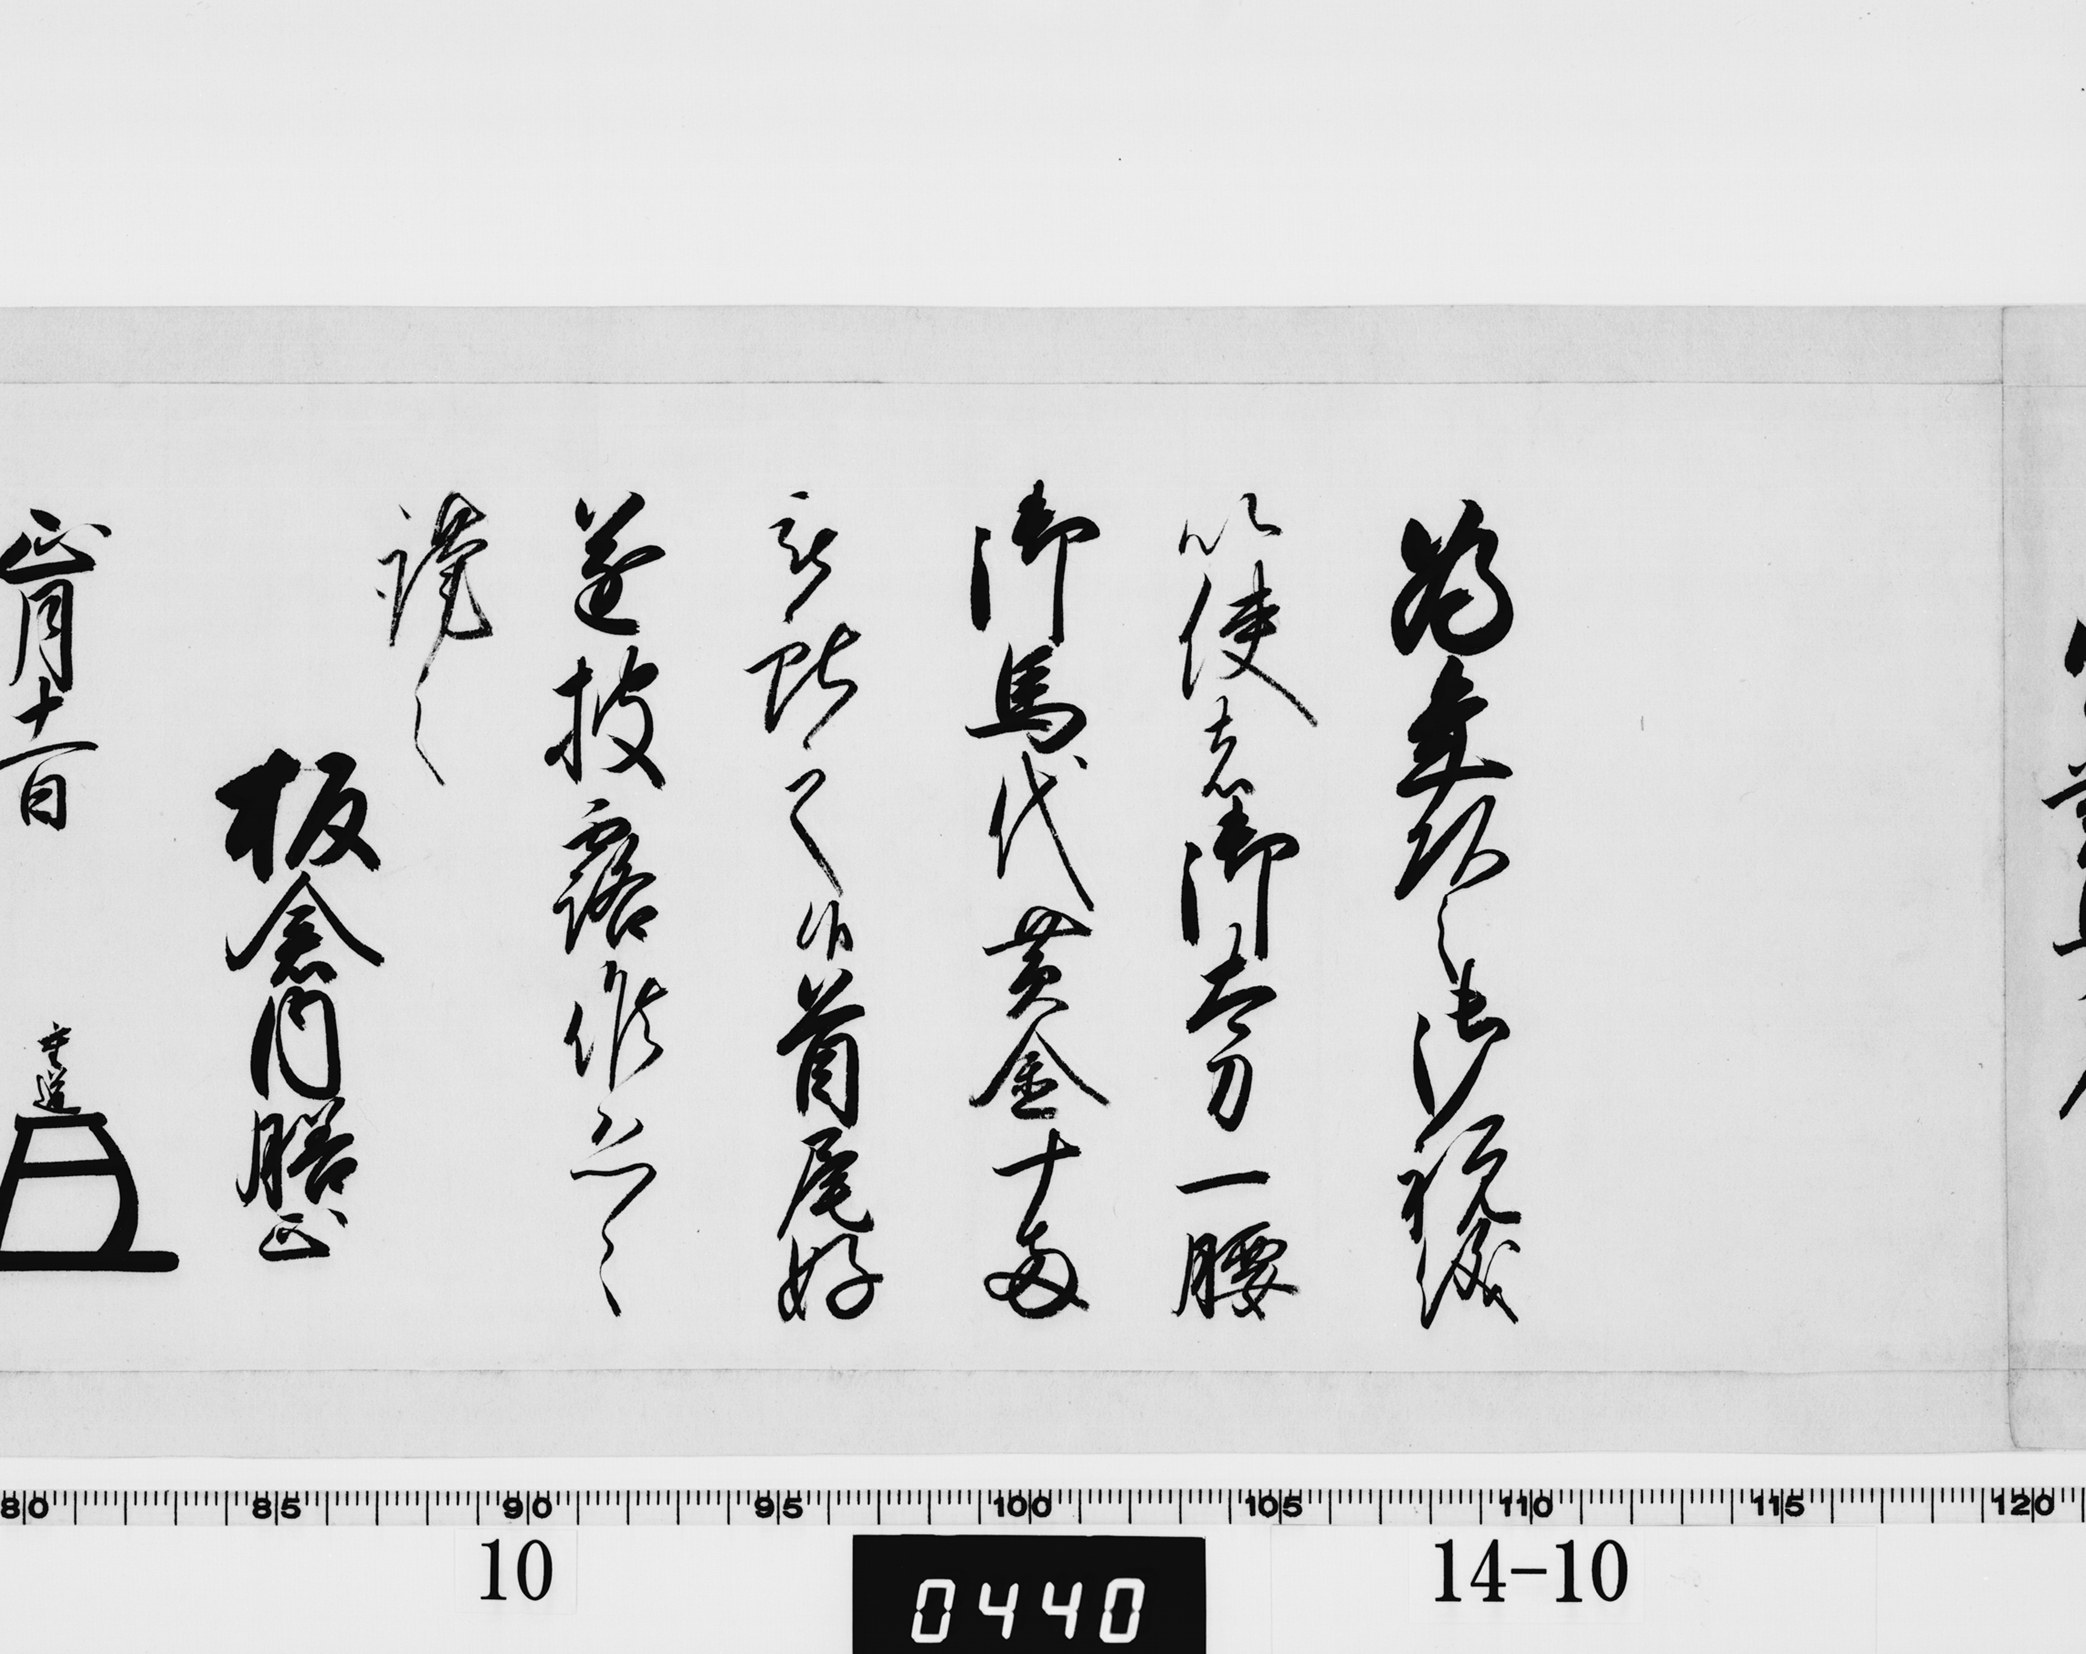 為年頭之御祝儀
以使者御太刀一腰
御馬代黄金十両
被献之候首尾好
遂披露候恐々
謹言
板倉内膳正
正月十一日 重道
80 85 90 95 100 105 110 115 120
10
0440
14-10